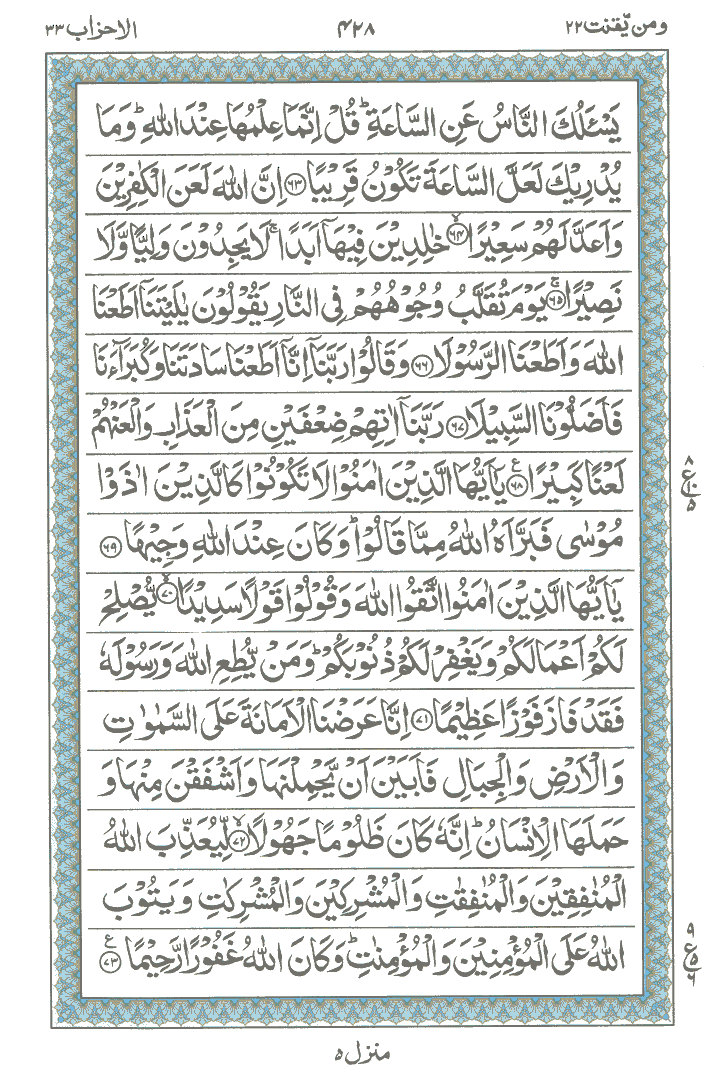 ومن یّقنت ۲۲ ۴۲۸ الاحزاب ۳۳
یَسْـَٔلُكَ النَّاسُ عَنِ السَّاعَةِ ؕ قُلْ اِنَّمَا عِلْمُهَا عِنْدَ اللّٰهِ ؕ وَمَا
یُدْرِیْكَ لَعَلَّ السَّاعَةَ تَكُوْنُ قَرِیْبًا ۶۳ اِنَّ اللّٰهَ لَعَنَ الْكٰفِرِیْنَ
وَاَعَدَّ لَهُمْ سَعِیْرًا ۶۴ خٰلِدِیْنَ فِیْهَاۤ اَبَدًا ۚ لَا یَجِدُوْنَ وَلِیًّا وَّلَا
نَصِیْرًا ۶۵ یَوْمَ تُقَلَّبُ وُجُوْهُهُمْ فِی النَّارِ یَقُوْلُوْنَ یٰلَیْتَنَاۤ اَطَعْنَا
اللّٰهَ وَاَطَعْنَا الرَّسُوْلَا ۶۶ وَقَالُوْا رَبَّنَاۤ اِنَّاۤ اَطَعْنَا سَادَتَنَا وَكُبَرَآءَنَا
فَاَضَلُّوْنَا السَّبِیْلَا ۶۷ رَبَّنَاۤ اٰتِهِمْ ضِعْفَیْنِ مِنَ الْعَذَابِ وَالْعَنْهُمْ
لَعْنًا كَبِیْرًا ۶۸ یٰۤاَیُّهَا الَّذِیْنَ اٰمَنُوْا لَا تَكُوْنُوْا كَالَّذِیْنَ اٰذَوْا
مُوْسٰی فَبَرَّاَهُ اللّٰهُ مِمَّا قَالُوْا ؕ وَكَانَ عِنْدَ اللّٰهِ وَجِیْهًا ۶۹
یٰۤاَیُّهَا الَّذِیْنَ اٰمَنُوا اتَّقُوا اللّٰهَ وَقُوْلُوْا قَوْلًا سَدِیْدًا ۷۰ یُّصْلِحْ
لَكُمْ اَعْمَالَكُمْ وَیَغْفِرْ لَكُمْ ذُنُوْبَكُمْ ؕ وَمَنْ یُّطِعِ اللّٰهَ وَرَسُوْلَهٗ
فَقَدْ فَازَ فَوْزًا عَظِیْمًا ۷۱ اِنَّا عَرَضْنَا الْاَمَانَةَ عَلَی السَّمٰوٰتِ
وَالْاَرْضِ وَالْجِبَالِ فَاَبَیْنَ اَنْ یَّحْمِلْنَهَا وَاَشْفَقْنَ مِنْهَا وَ
حَمَلَهَا الْاِنْسَانُ ؕ اِنَّهٗ كَانَ ظَلُوْمًا جَهُوْلًا ۷۲ لِّیُعَذِّبَ اللّٰهُ
الْمُنٰفِقِیْنَ وَالْمُنٰفِقٰتِ وَالْمُشْرِكِیْنَ وَالْمُشْرِكٰتِ وَیَتُوْبَ
اللّٰهُ عَلَی الْمُؤْمِنِیْنَ وَالْمُؤْمِنٰتِ ؕ وَكَانَ اللّٰهُ غَفُوْرًا رَّحِیْمًا ۷۳
منزل ۵